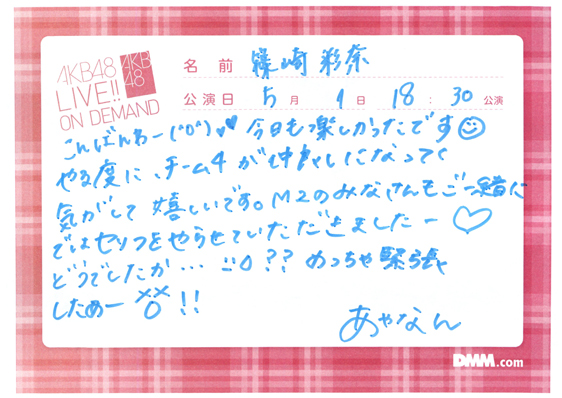 AKB48
LIVE!!
ON DEMAND
AKB
48
名前 篠崎彩奈
公演日 5月 1日 18:30 公演
こんばんわー(^o^)♥♥ 今日も楽しかったです☺
やる度に、チーム4が仲良しになってく
気がして嬉しいです。M2のみなさんもご一緒に
ではセリフをやらせていただきましたー♡
どうでしたか…??めっちゃ緊張
したぁー!!
あやなん
DMM.com